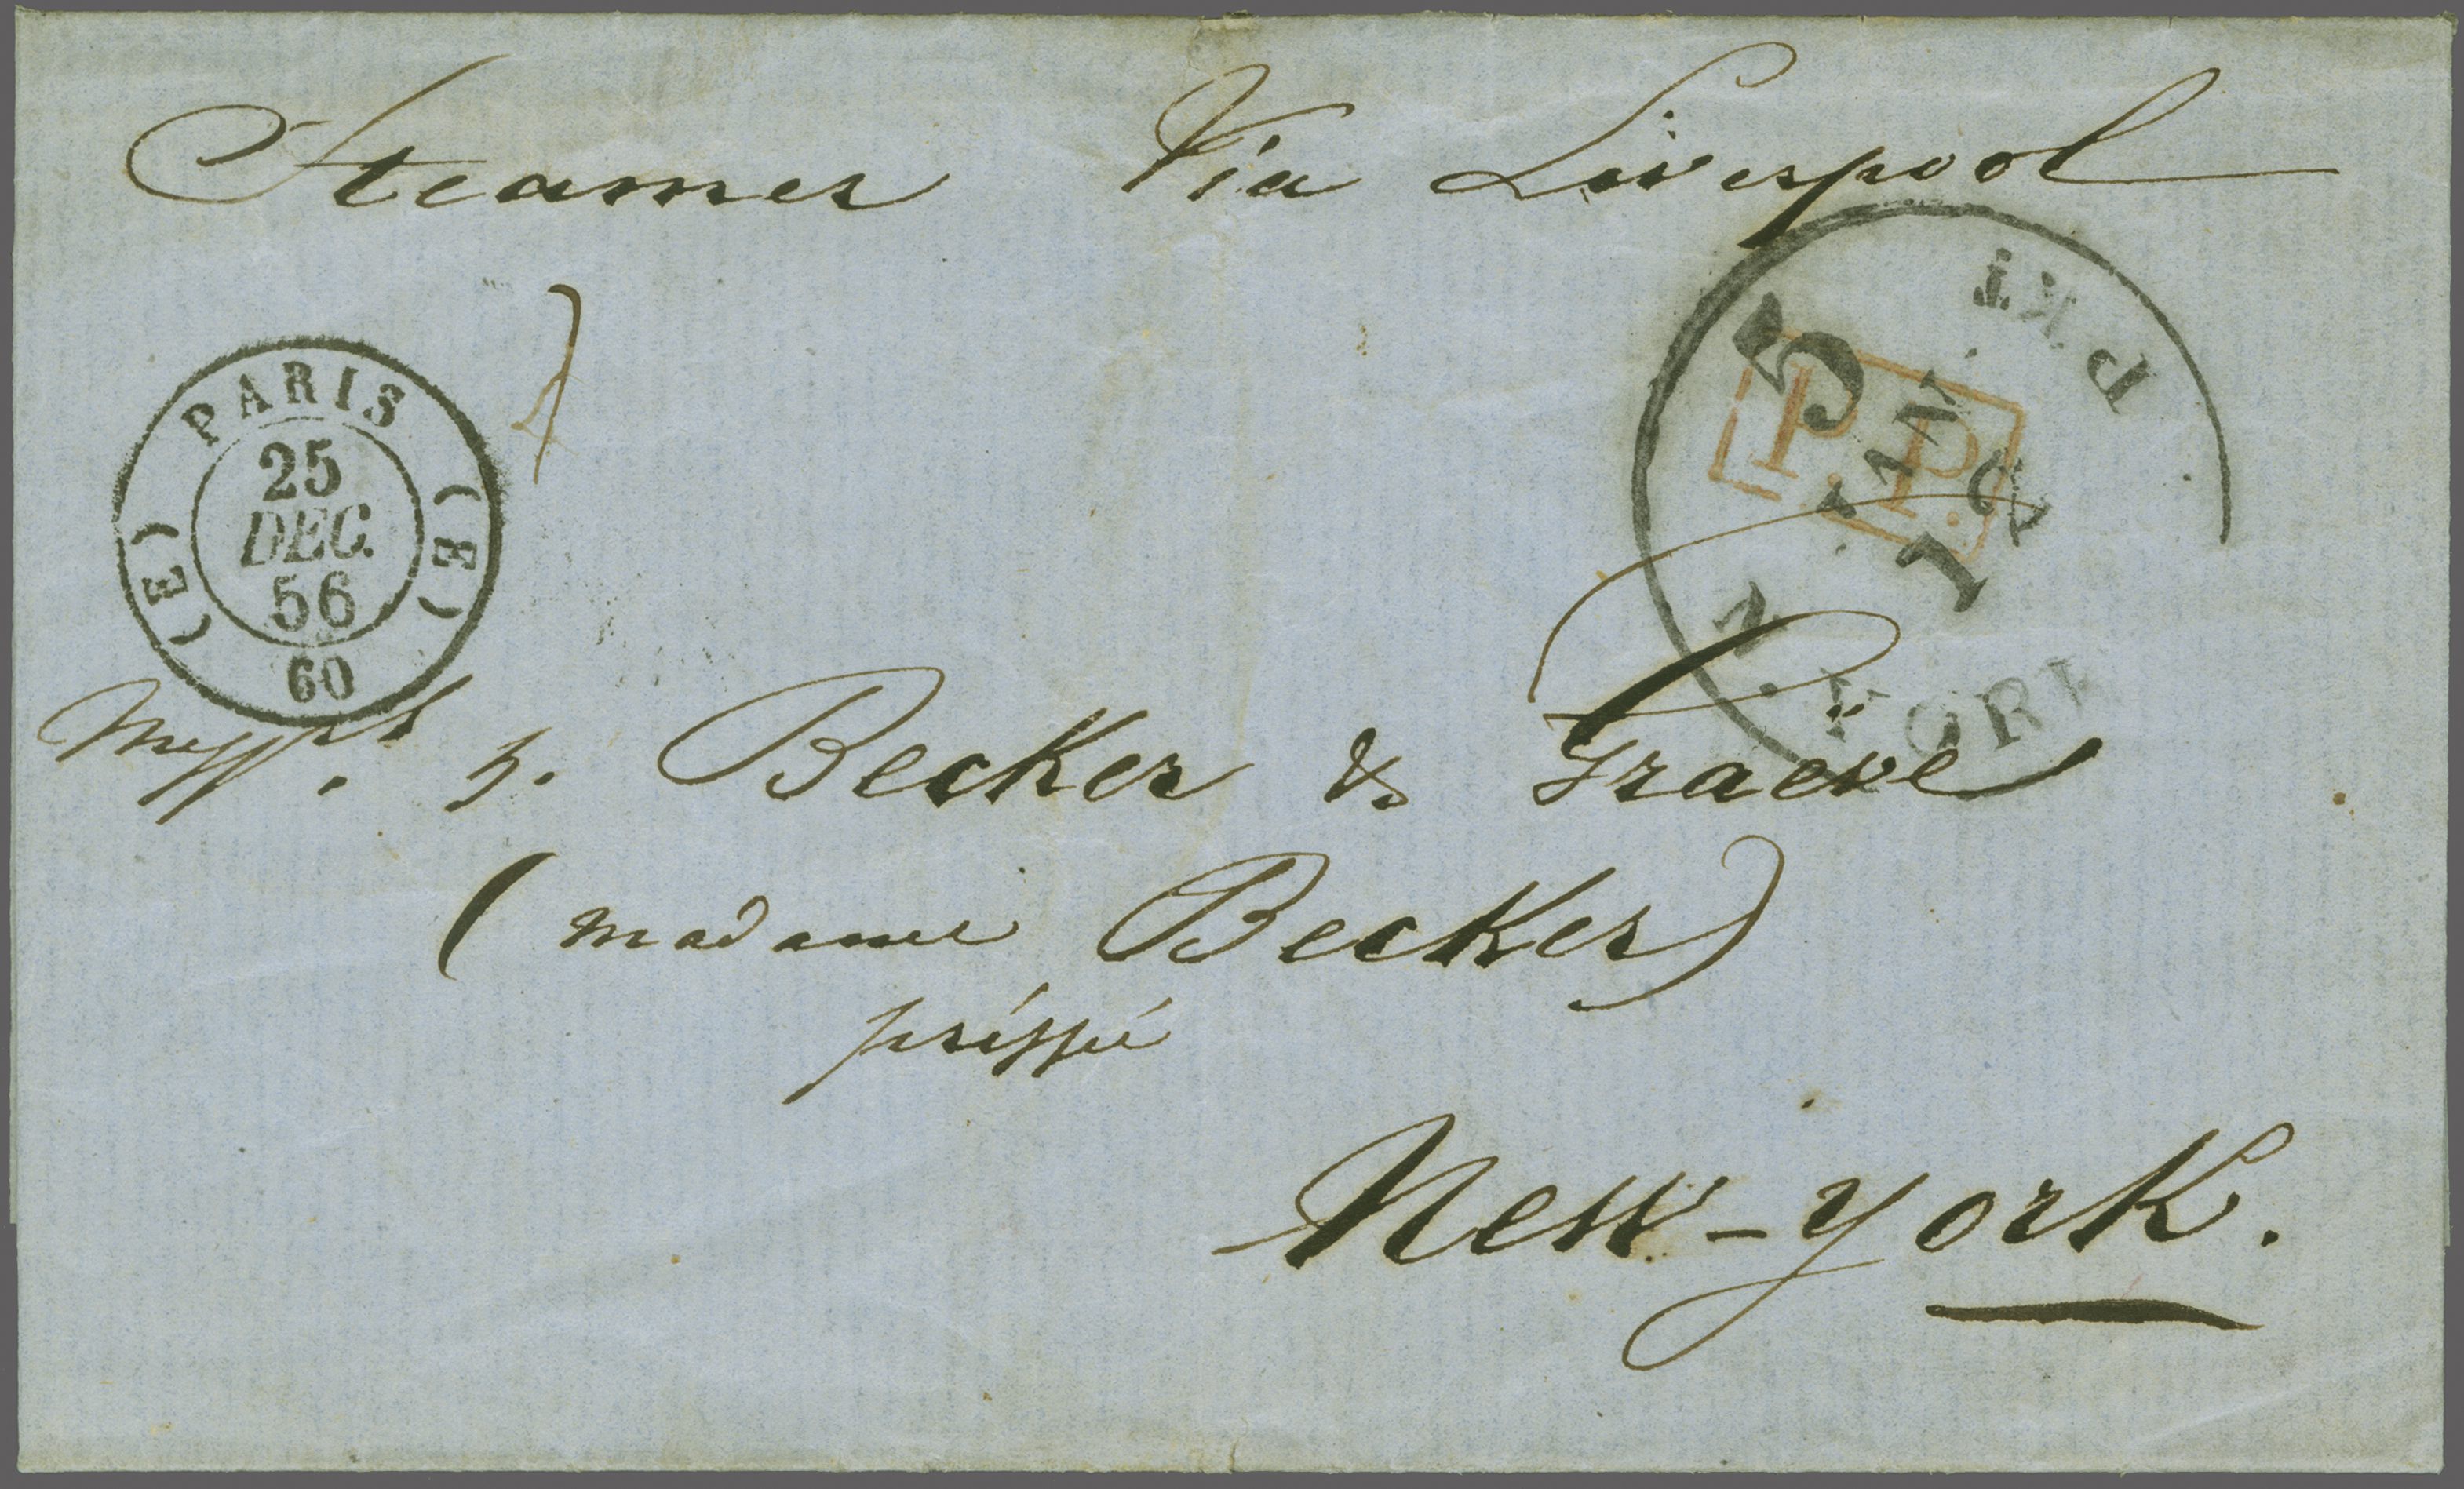 Steamer Via Liverpool
PARIS
(E) (E)
25
DEC.
56
60
5
P.P.
JAN
12
N. YORK
PKT
Messrs. h. Becker & Graeve
(madame Becker)
New-york.